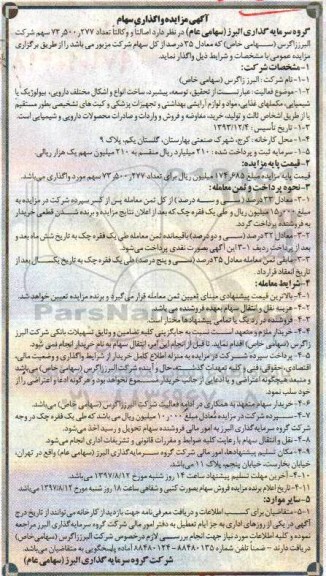 آگهی مزایده واگذاری سهام
گروه سرمایه گذاری البرز (سهامی عام) در نظر دارد اصالتا و وکالتا تعداد ۷۳,۵۰۰,۲۷۷ سهم شرکت
البرززاگرس (سهامی خاص) که معادل ۳۵ درصد از کل سهام شرکت مزبور می باشد را از طریق برگزاری
مزایده عمومی با مشخصات و شرایط ذیل واگذار نماید.
۱-مشخصات شرکت:
۱-۱- نام شرکت: البرز زاگرس (سهامی خاص)
۱-۲- موضوع فعالیت: عبارتست از تحقیق، توسعه، پیشبرد، ساخت انواع و اشکال مختلف دارویی، بیولوژیک یا
شیمیایی، مکملهای غذایی، مواد و لوازم آرایشی بهداشتی و تجهیزات پزشکی و کیت های تشخیصی بطور مستقیم
یا از طریق اشخاص ثالث و تولید، خرید، معاوضه و فروش و واردات و صادرات محصولات دارویی و شیمیایی است.
۱-۳- تاریخ تأسیس: ۱۳۹۳/۱۲/۴
۱-۴- محل کارخانه: کرج، شهرک صنعتی بهارستان، گلستان یکم، پلاک ۹
۱-۵- سرمایه ثبت و پرداخت شده: ۲۱۰ میلیارد ریال منقسم به ۲۱۰ میلیون سهم یک هزار ریالی.
۲-قیمت پایه مزایده:
قیمت پایه مزایده مبلغ ۱۷۴,۶۸۵ میلیون ریال برای تعداد ۷۳,۵۰۰,۲۷۷ سهم مورد واگذاری می باشد.
۳-نحوه پرداخت و ثمن معامله:
۳-۱- معادل ۳۳ درصد (سی و سه درصد) از کل ثمن معامله پس از کسر سپرده شرکت در مزایده به
مبلغ میلیون ریال و طی یک فقره چک که بعد از اعلان نتایج مزایده و برنده شدن قطعی خریدار
به فروشنده پرداخت گردد.
۳-۲- معادل ۳۲ درصد (سی و دو درصد) باقیمانده ثمن معامله طی یک فقره چک به تاریخ شش ماه بعد و
بعد از پرداخت ردیف ۱-۳ این آگهی بصورت نقدی پرداخت می شود.
۳-۳- مابقی ثمن معامله معادل ۳۵ درصد (سی و پنج درصد) طی یک فقره چک به تاریخ یکسال بعد از
تاریخ انعقاد قرارداد.
۴-شرایط معامله:
۴-۱- بالاترین قیمت پیشنهادی مبنای تعیین ثمن معامله قرار می گیرد و برنده مزایده تعیین خواهد شد.
۴-۲- هزینه نقل و انتقال سهام بعهده فروشنده می باشد.
۴-۳- فروشنده در رد یک یا تمامی پیشنهادها مختار است.
۴-۴- خریدار ملزم و متعهد است نسبت به جایگزینی کلیه تضامین و وثایق تسهیلات بانکی شرکت البرز
زاگرس (سهامی خاص) اقدام نماید. تا قبل از انجام این امر، انتقال سهام به نام خریدار انجام نمی شود.
۴-۵- پرداخت سپرده شرکت در مزایده به منزله اطلاع کامل خریدار از شرایط واگذاری و وضعیت مالی،
اقتصادی، حقوقی، فنی و کلیه تعهدات گذشته، حال و آینده شرکت البرز زاگرس (سهامی خاص) می باشد
و متعاقبا هیچگونه اعتراضی و یا ادعایی از جانب خریدار مسموع نخواهد بود و هرگونه ادعا و اعتراضی را از
خود سلب نمود.
۴-۶- خریدار سهام متعهد به همکاری در ادامه فعالیت شرکت البرززاگرس (سهامی خاص) می باشد.
۴-۷- سپرده شرکت در مزایده معادل مبلغ میلیون ریال می باشد که طی یک فقره چک در وجه
شرکت گروه سرمایه گذاری البرز به امور مالی فروشنده سهام تحویل و رسید اخذ می شود.
۴-۸- نقل و انتقال سهام با رعایت کلیه ضوابط و مقررات قانونی و تشریفات اداری انجام می شود.
۴-۹- مکان تسلیم پیشنهادها، امور مالی شرکت گروه سرمایه گذاری البرز (سهامی عام) واقع در تهران،
خیابان بخارست، خیابان پنجم، پلاک ۱۱ می باشد.
۴-۱۰- آخرین مهلت تسلیم پیشنهاد ساعت ۱۴ روز شنبه مورخ ۱۳۹۷/۸/۱۲ می باشد.
۴-۱۱- تاریخ اعلام برنده مزایده فروش سهام بصورت کتبی و شفاهی ساعت ۱۸ روز شنبه مورخ ۱۳۹۷/۸/۱۲ می باشد.
۵-سایر موارد:
۵-۱- متقاضیان برای کسب اطلاعات و دریافت معرفی نامه جهت بازدید از کارخانه می توانند از تاریخ درج
آگهی در یکی از روزهای اداری به جز ایام تعطیل به دفتر امور مالی شرکت گروه سرمایه گذاری البرز مراجعه
نموده و کلیه اطلاعات مورد نیاز جهت انجام بررسی لازم درخصوص شرکت البرز زاگرس (سهامی خاص)
دریافت دارند - ضمنا تلفن شماره ۸۸۴۸۰۱۳۵-۸۸۴۸۰۱۲۴ آماده پاسخگویی به متقاضیان می باشد.
شرکت گروه سرمایه گذاری البرز (سهامی عام)